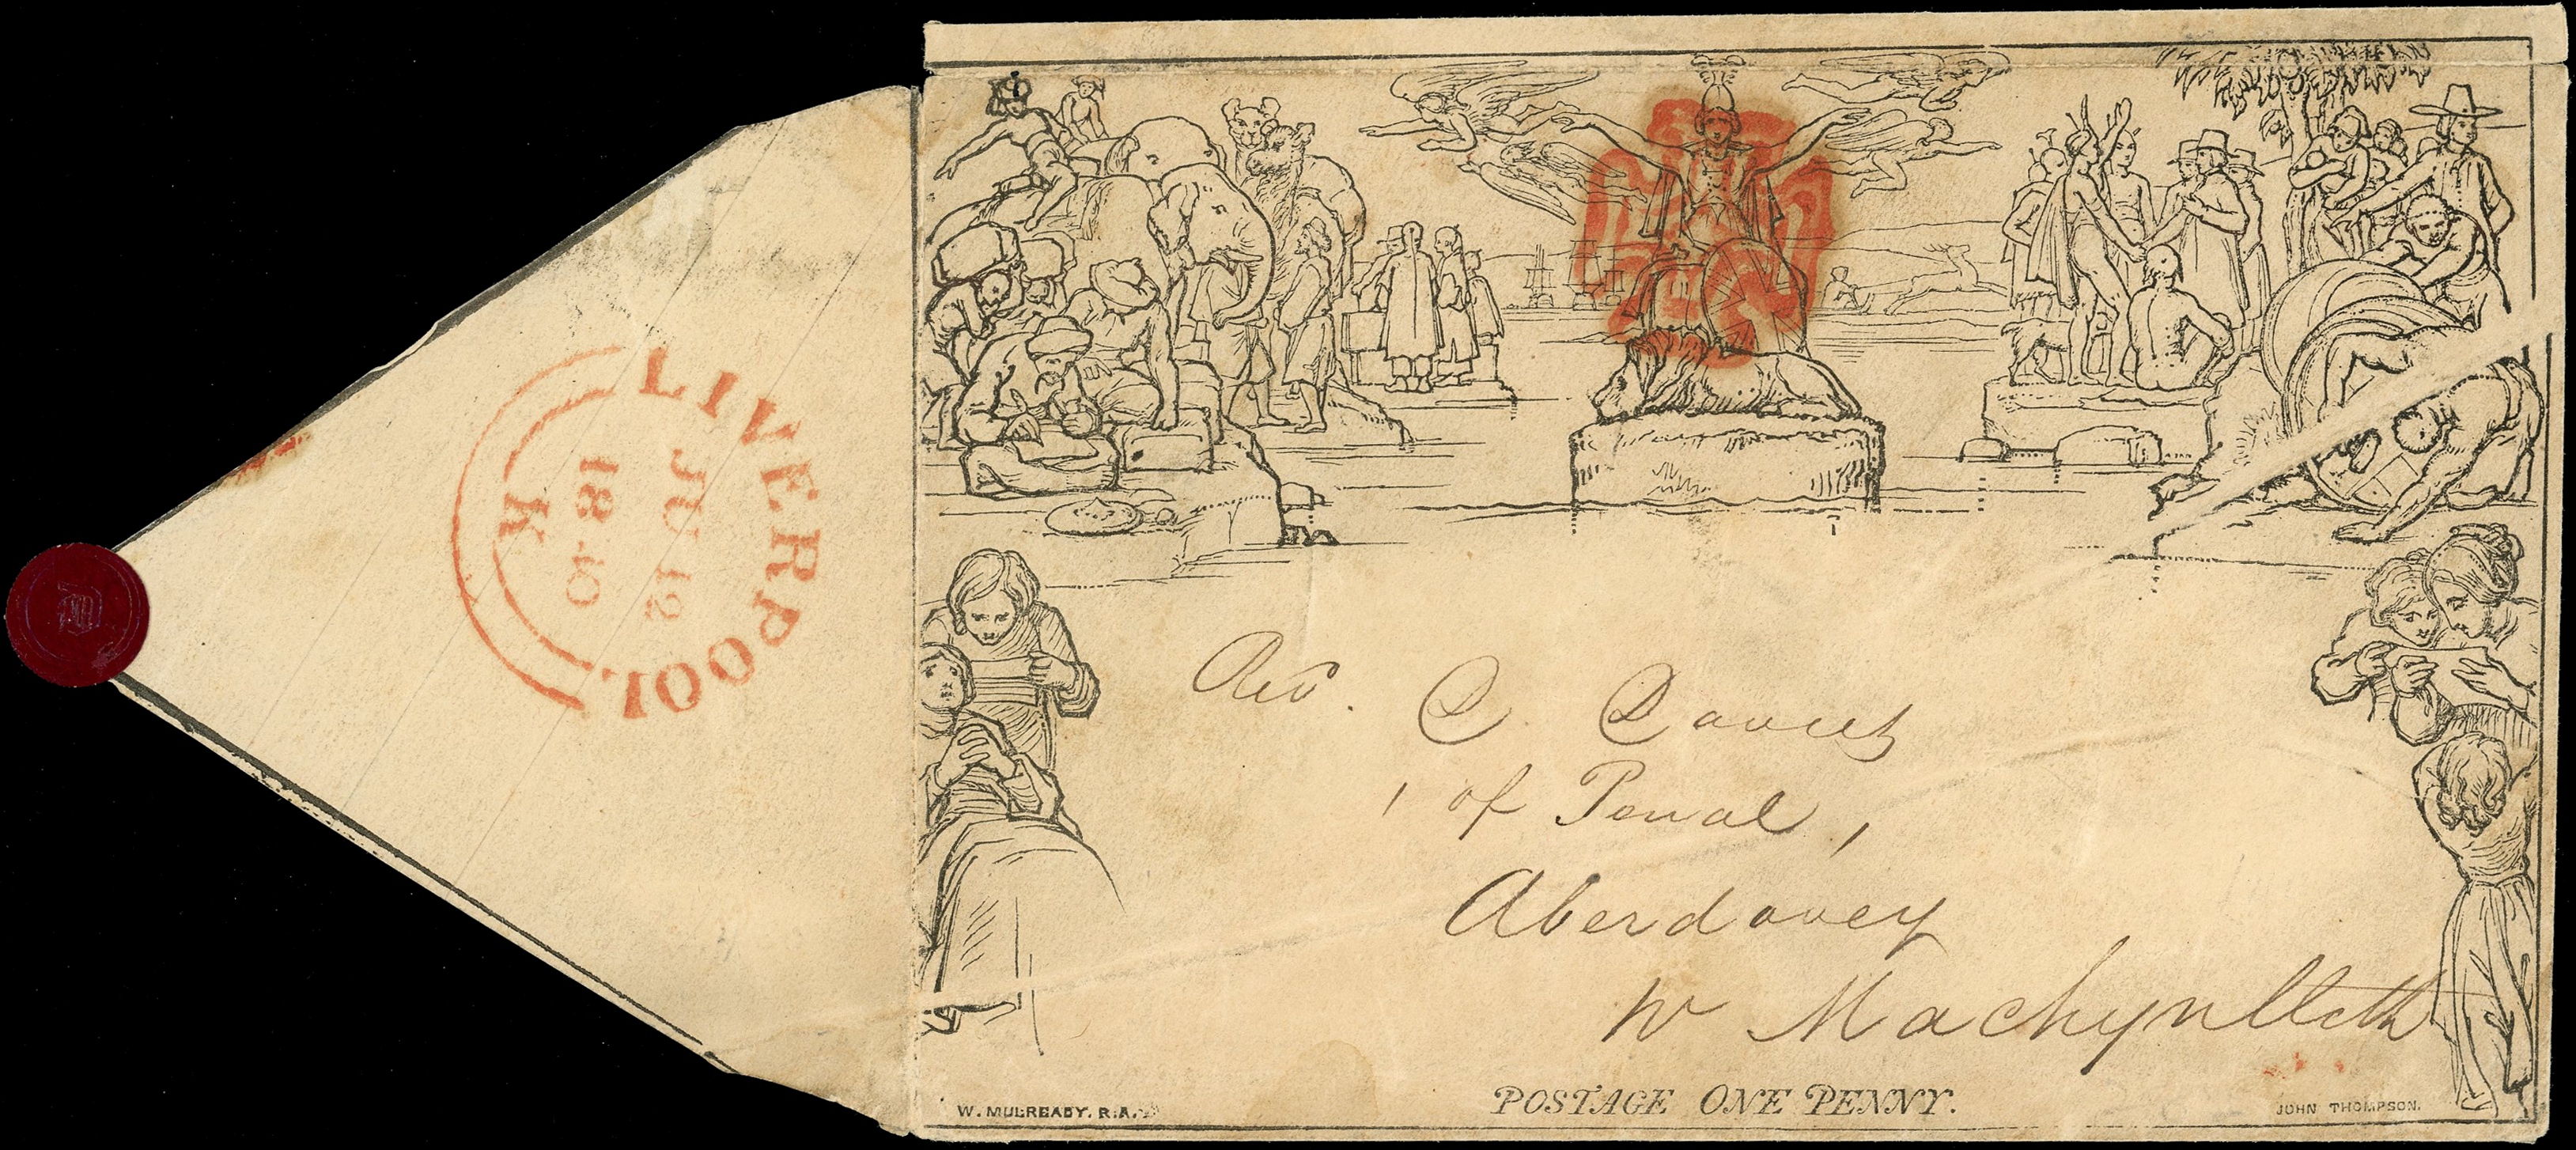 LIVERPOOL
JU 12
1840
K
Rev. D Davies
of Penal,
Aberdovey
nr Machynlleth
POSTAGE ONE PENNY.
W. MULREADY. R.A.
JOHN THOMPSON.